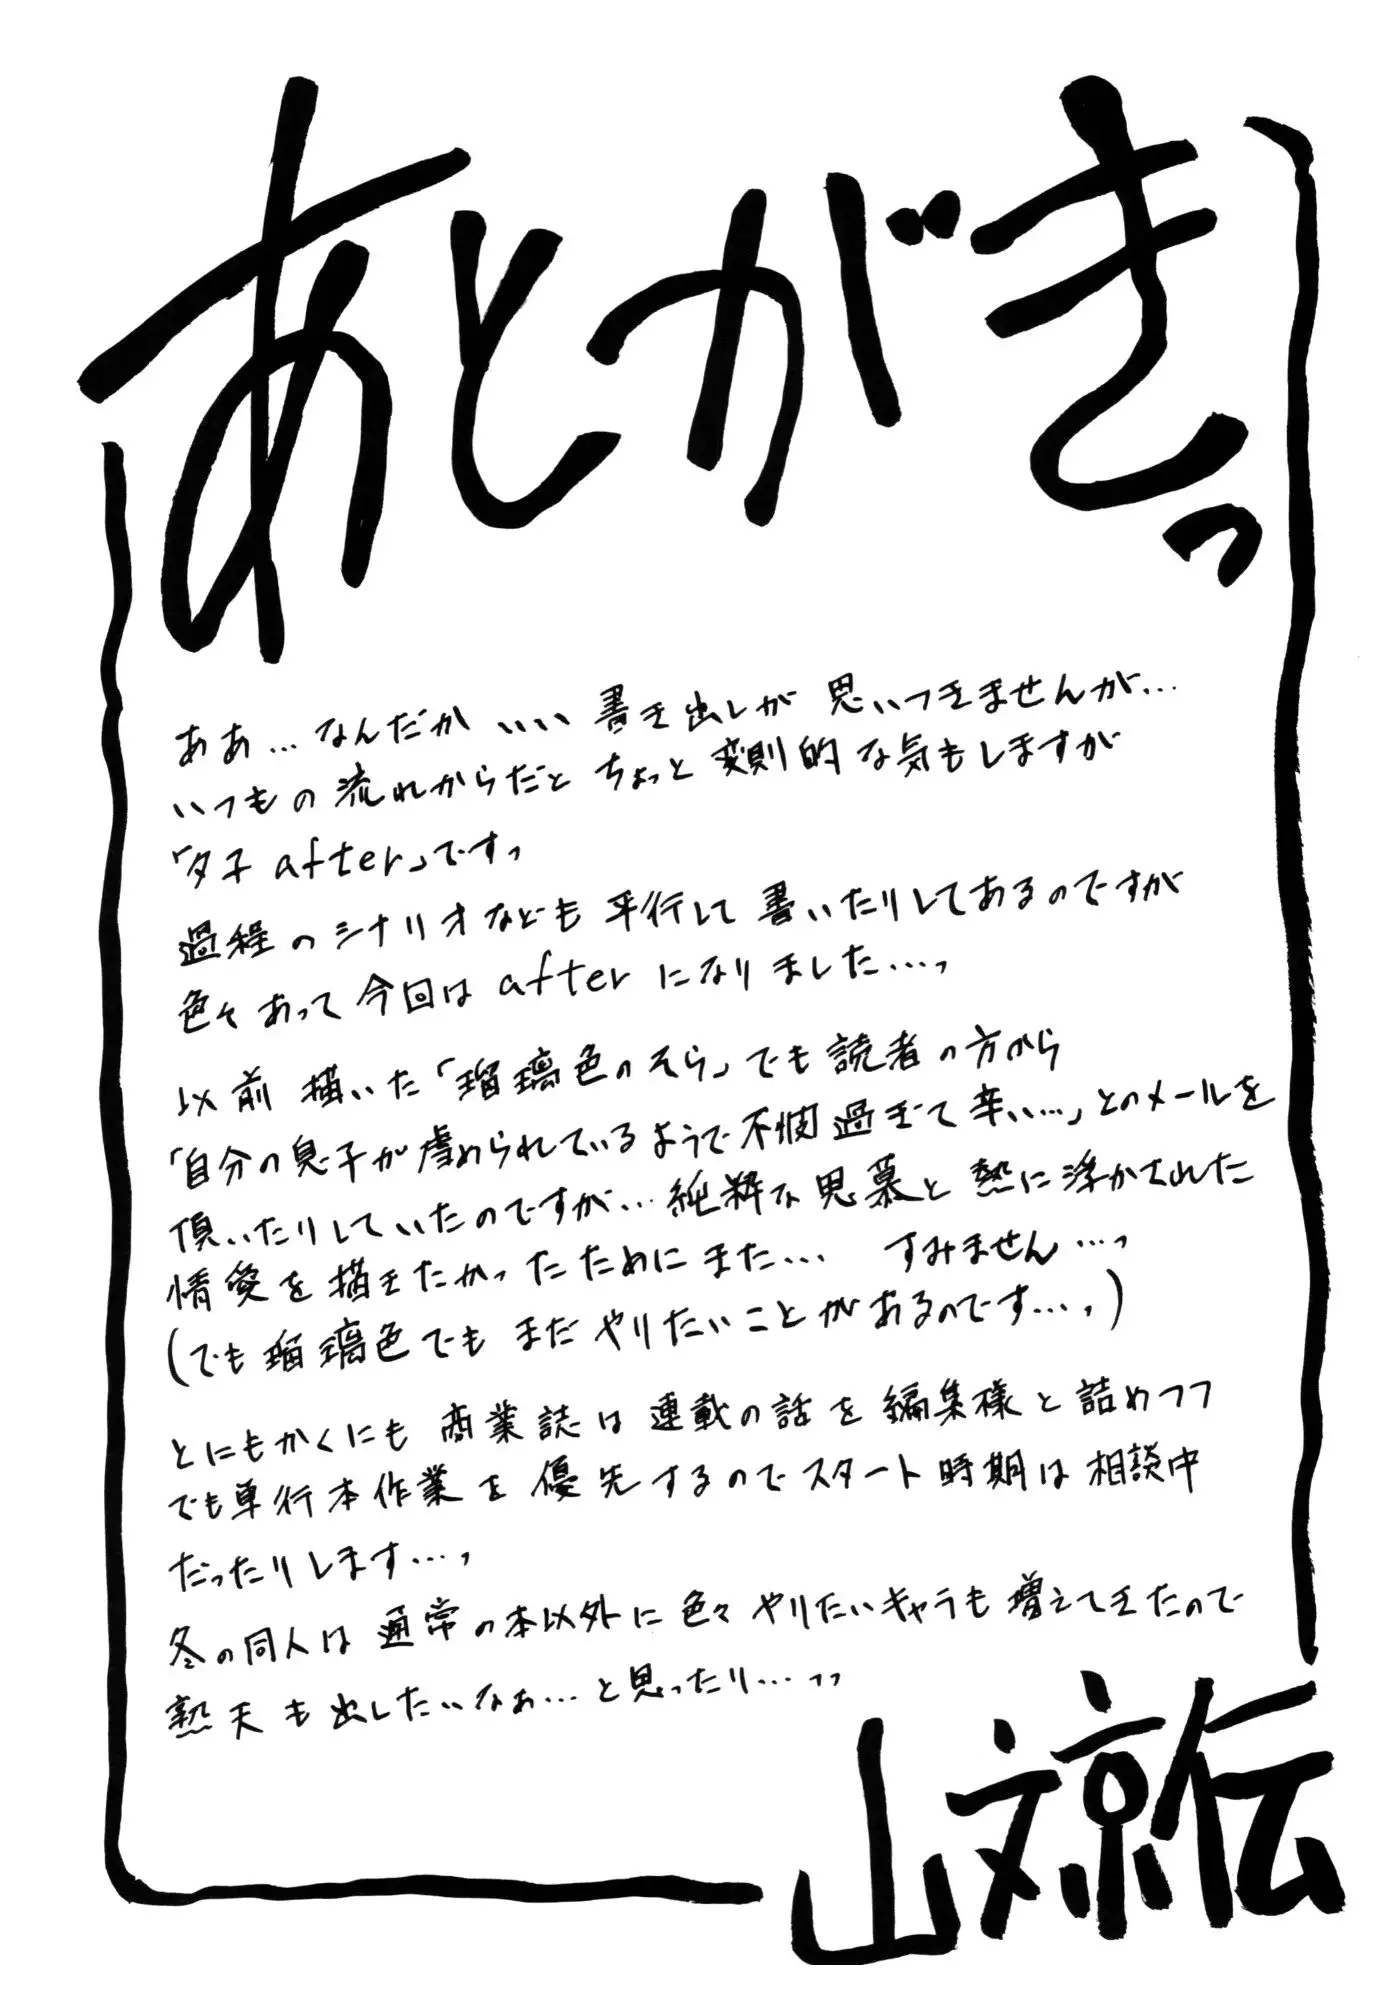 あとがきっ
ああ…なんだか いい 書き出しが 思いつきませんが…
いつもの 流れからだと ちょっと 変則的な気もしますが
「夕子 after」ですっ
過程のシナリオなども 平行して 書いたりしてあるのですが
色々あって 今回は after になりました…っ
以前 描いた「瑠璃色のそら」でも 読者の方から
「自分の息子が虐められているようで不憫過ぎて辛い…」とのメールを
頂いたりしていたのですが…純粋な思慕と 熱に浮かされた
情愛を描きたかったためにまた… すみません…っ
(でも瑠璃色でも まだ やりたいことがあるのです…っ)
とにもかくにも 商業誌は 連載の話を 編集様と 詰めつつ
でも単行本作業を 優先するのでスタート時期は相談中
だったりします…っ
冬の同人は 通常の本以外に 色々 やりたいキャラも 増えてきたので
熟天も出したいなぁ…と思ったり…っっ
山文京伝